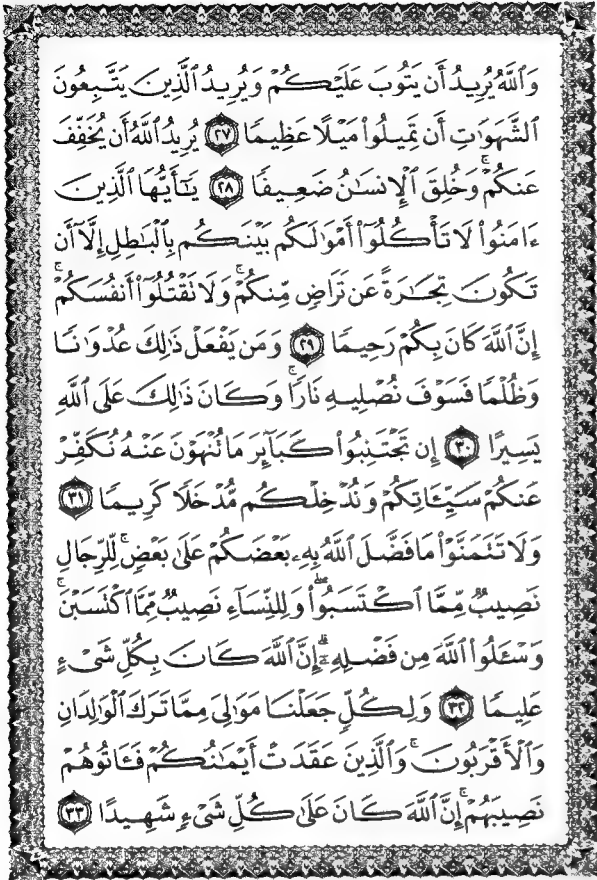 وَٱللَّهُ يُرِيدُ أَن يَتُوبَ عَلَيْكُمْ وَيُرِيدُ ٱلَّذِينَ يَتَّبِعُونَ
ٱلشَّهَوَٰتِ أَن تَمِيلُوا۟ مَيْلًا عَظِيمًا ٢٧ يُرِيدُ ٱللَّهُ أَن يُخَفِّفَ
عَنكُمْ ۚ وَخُلِقَ ٱلْإِنسَٰنُ ضَعِيفًا ٢٨ يَٰٓأَيُّهَا ٱلَّذِينَ
ءَامَنُوا۟ لَا تَأْكُلُوٓا۟ أَمْوَٰلَكُم بَيْنَكُم بِٱلْبَٰطِلِ إِلَّآ أَن
تَكُونَ تِجَٰرَةً عَن تَرَاضٍ مِّنكُمْ ۚ وَلَا تَقْتُلُوٓا۟ أَنفُسَكُمْ ۚ
إِنَّ ٱللَّهَ كَانَ بِكُمْ رَحِيمًا ٢٩ وَمَن يَفْعَلْ ذَٰلِكَ عُدْوَٰنًا
وَظُلْمًا فَسَوْفَ نُصْلِيهِ نَارًا ۚ وَكَانَ ذَٰلِكَ عَلَى ٱللَّهِ
يَسِيرًا ٣٠ إِن تَجْتَنِبُوا۟ كَبَآئِرَ مَا تُنْهَوْنَ عَنْهُ نُكَفِّرْ
عَنكُمْ سَيِّـَٔاتِكُمْ وَنُدْخِلْكُم مُّدْخَلًا كَرِيمًا ٣١
وَلَا تَتَمَنَّوْا۟ مَا فَضَّلَ ٱللَّهُ بِهِۦ بَعْضَكُمْ عَلَىٰ بَعْضٍ ۚ لِّلرِّجَالِ
نَصِيبٌ مِّمَّا ٱكْتَسَبُوا۟ ۖ وَلِلنِّسَآءِ نَصِيبٌ مِّمَّا ٱكْتَسَبْنَ ۚ
وَسْـَٔلُوا۟ ٱللَّهَ مِن فَضْلِهِۦٓ ۗ إِنَّ ٱللَّهَ كَانَ بِكُلِّ شَىْءٍ
عَلِيمًا ٣٢ وَلِكُلٍّ جَعَلْنَا مَوَٰلِىَ مِمَّا تَرَكَ ٱلْوَٰلِدَانِ
وَٱلْأَقْرَبُونَ ۚ وَٱلَّذِينَ عَقَدَتْ أَيْمَٰنُكُمْ فَـَٔاتُوهُمْ
نَصِيبَهُمْ ۚ إِنَّ ٱللَّهَ كَانَ عَلَىٰ كُلِّ شَىْءٍ شَهِيدًا ٣٣